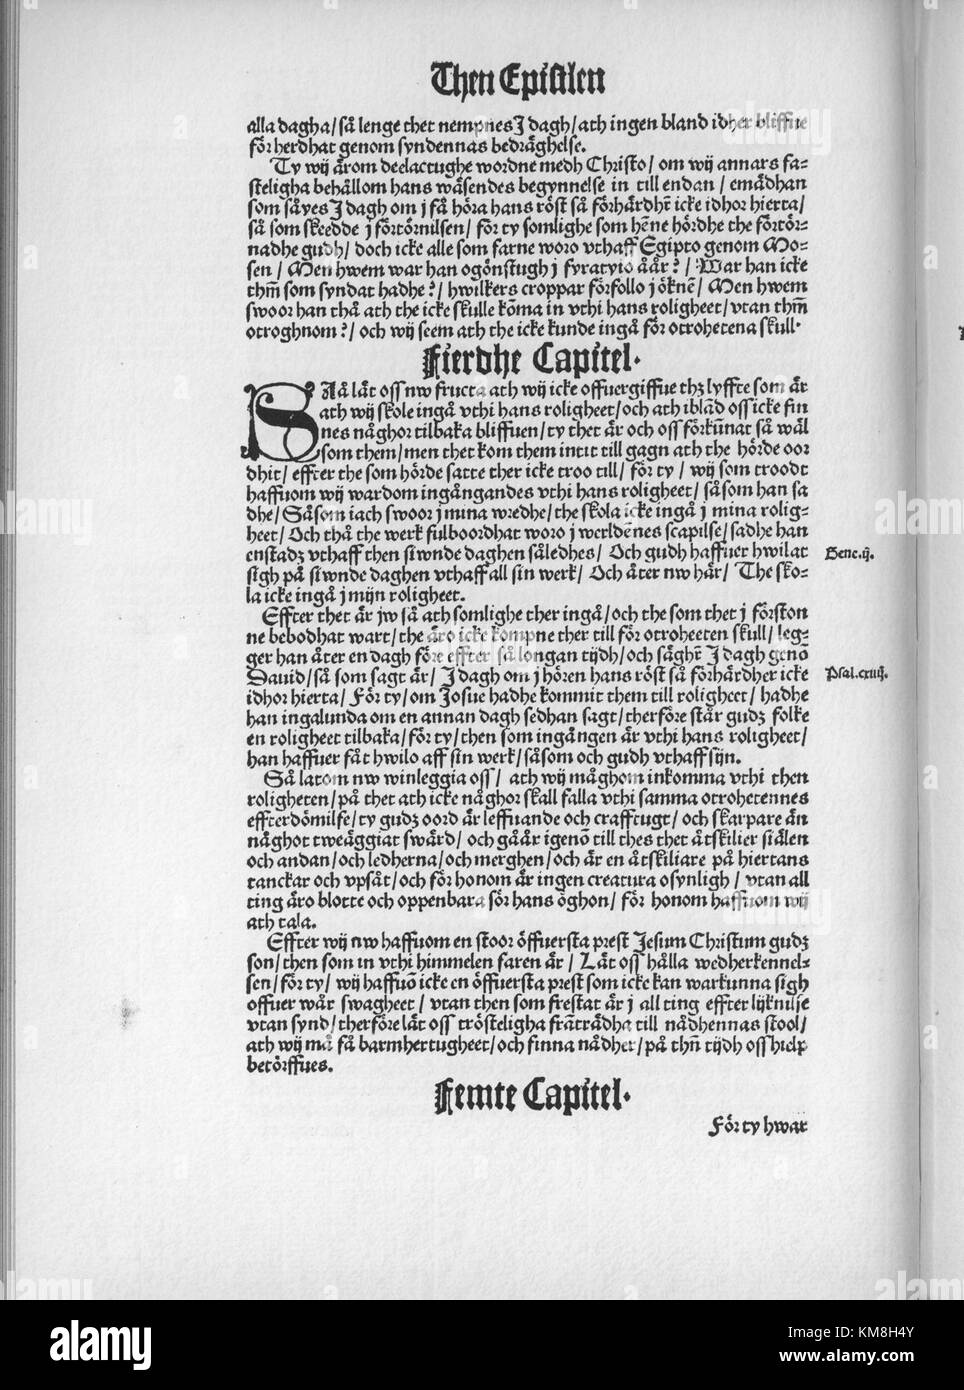 Then Epistlen
alla dagha/ så lenge thet nempnes J dagh/ ath ingen bland idher bliffue
förherdhat genom syndennas bedräghelse.
Ty wij ärom deelactughe wordne medh Christo/ om wij annars fa-
steligha behållom hans wäsendes begynnelse in till endan/ emådhan
som säyes J dagh om j få höra hans röst så förhärdhē icke idhor hierta/
så som skeedde j förtörnilsen/ för ty somlighe som hēne hördhe the förtör-
nadhe gudh/ doch icke alle som farne woro vthaff Egipto genom Mo-
sen/ Men hwem war han ogönstugh j fyratyio åår? / War han icke
thm̄ som syndat hadhe? / hwilkers croppar förfollo j öknē/ Men hwem
swoor han thå ath the icke skulle kōma in vthi hans roligheet/ vtan thm̄
otroghnom? / och wij seem ath the icke kunde ingå för otrohetena skull.
Fierdhe Capitel.
SAå låt oss nw fructa ath wij icke offuergiffue thz lyffte som är
ath wij skole ingå vthi hans roligheet/ och ath ibläd oss icke fin
nes någhor tilbaka bliffuen/ ty thet är och oss förkūnat så wäl
som them/ men thet kom them intit till gagn ath the hörde oor
dhit/ effter the som hörde satte ther icke troo till/ för ty/ wij som troodt
haffuom wij wardom ingångandes vthi hans roligheet/ såsom han sa
dhe/ Såsom iach swoor j mina wredhe/ the skola icke ingå j mina rolig-
heet/ Och thå the werk fulboordhat woro j werldēnes scapilse/ sadhe han
enstadz vthaff then siwnde daghen såledhes/ Och gudh haffuer hwilat
sigh på siwnde daghen vthaff all sin werk/ Och åter nw här/ The sko-
la icke ingå j mijn roligheet.
Gene.ij.
Effter thet är jw så ath somlighe ther ingå/ och the som thet j förston
ne bebodhat wart/ the äro icke kompne ther till för otroheeten skull/ leg-
ger han åter en dagh före effter så longan tijdh/ och säghē J dagh genō
Dauid/ så som sagt är/ J dagh om j hören hans röst så förhärdher icke
idhor hierta/ För ty/ om Josue hadhe kommit them till roligheet/ hadhe
han ingalunda om en annan dagh sedhan sagt/ therföre står gudz folke
en roligheet tilbaka/ för ty/ then som ingången är vthi hans roligheet/
han haffuer fåt hwilo aff sin werk/ såsom och gudh vthaff sijn.
Psal.cxiiij.
Så latom nw winleggia oss/ ath wij måghom inkomma vthi then
roligheten/ på thet ath icke någhor skall falla vthi samma otrohetennes
effterdömilse/ ty gudz oord är leffuande och crafftugt/ och skarpare än
någhot tweäggiat swärd/ och gåår igenō till thes thet åtskilier siälen
och andan/ och ledherna/ och merghen/ och är en åtskiliare på hiertans
tanckar och vpsåt/ och för honom är ingen creatura osynligh/ vtan all
ting äro blotte och oppenbara för hans öghon/ för honom haffuom wij
ath tala.
Effter wij nw haffuom en stoor öffuersta prest Jesum Christum gudz
son/ then som in vthi himmelen faren är/ Låt oss hålla wedherkennel-
sen/ för ty/ wij haffuō icke en öffuersta prest som icke kan warkunna sigh
offuer wår swagheet/ vtan then som frestat är j all ting effter lijknilse
vtan synd/ therföre låt oss trösteligha frāträdha till nådhennas stool/
ath wij må få barmhertugheet/ och finna nådhet/ på thn̄ tijdh oss hielp
betörffues.
Femte Capitel.
För ty hwar
alamy
Image ID: KM8H4Y
www.alamy.com